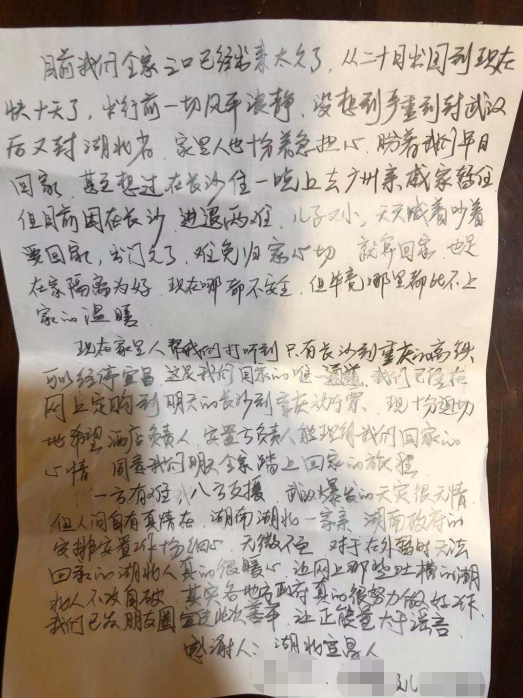 目前我们全家三口已经出来太久了，从二十日出国到现在
快十天了，出行前一切风平浪静，没想到严重到封武汉
后又封湖北省，家里人也十分着急担心，盼着我们早日
回家，甚至想过在长沙住一晚上去广州亲戚家暂住
但目前困在长沙，进退两难，儿子又小，天天喊着吵着
要回家，出门久了，难免归家心切，就算回家，也是
在家隔离为好，现在哪都不安全，但毕竟哪里都比不上
家的温暖
现在家里人帮我们打听到只有长沙到重庆的高铁
可以经停宜昌，这是我们回家的唯一通道，我们已经在
网上定购到明天的长沙到重庆动车票，现十分迫切
地希望酒店负责人，安置方负责人能理解我们回家的
心情，同意我们明天全家踏上回家的旅程
一方有难，八方支援，武汉爆发的天灾很无情
但人间自有真情在，湖南湖北一家亲，湖南政府的
安排安置工作十分细心，无微不至，对于在外暂时无法
回家的湖北人真的很暖心，让网上那些吐槽的湖
北人不攻自破，其实各地方政府真的很努力做好工作，
我们已发朋友圈宣传此次善举，让正能量大于谣言
感谢人：湖北宜昌人